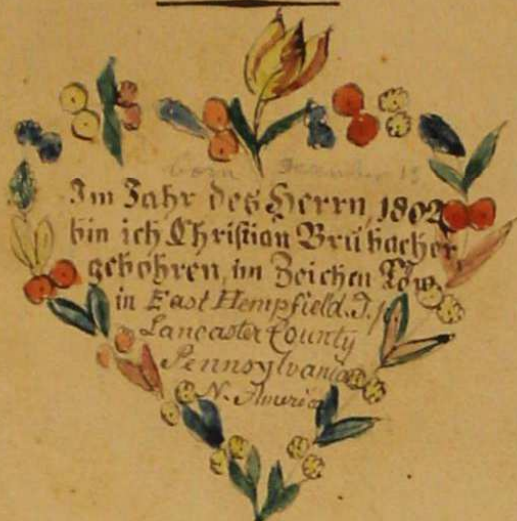 born December 13
Im Jahr des Herrn, 1802
bin ich Christian Brubacher,
gebohren, im Zeichen Löw,
in East Hempfield. T.
Lancaster County
Pennsylvania
N. America